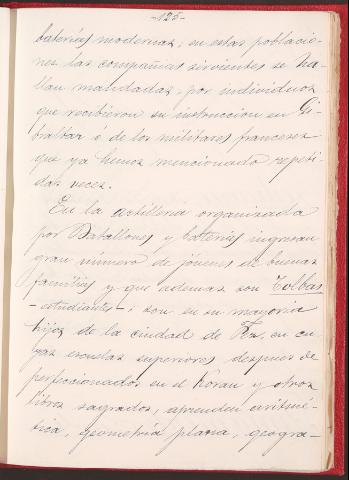 -125-
baterías modernas; en estas poblacio-
nes las compañias sirvientes se ha-
llan mandadas por individuos
que recibieron su instruccion en Gi-
braltar ó de los militares franceses
que ya hemos mencionado repeti-
das veces.
En la artilleria organizada
por Batallones y baterias ingresan
gran número de jóvenes de buenas
familias y que ademas son Tolbas
-estudiantes-; son en su mayoria
hijos de la ciudad de Fez, en cu-
yas escuelas superiores despues de
perfeccionados en el Koran y otros
libros sagrados, aprenden aritmé-
tica, geometría plana, geogra-